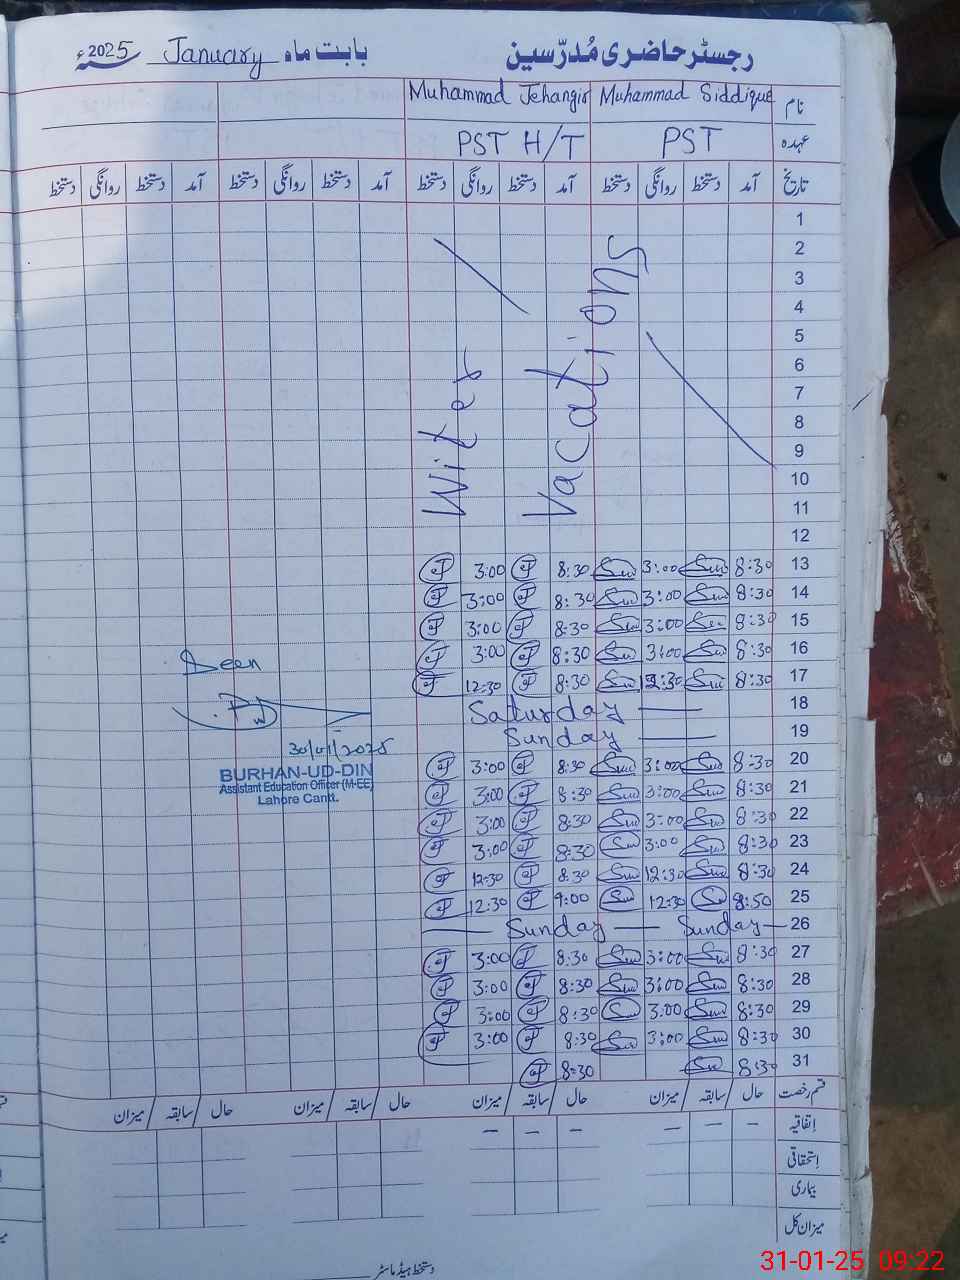 رجسٹر حاضری مُدرّسین بابت ماہ January سنہ 2025ء
نام Muhammad Siddique Muhammad Jehangir
عہدہ PST PST H/T
تاریخ آمد دستخط روانگی دستخط آمد دستخط روانگی دستخط آمد دستخط روانگی دستخط آمد دستخط روانگی دستخط
1
2
3
4
5
6
7
8
9
10
11
12
Witer Vacations
13 8:30 3:00 8:30 3:00
14 8:30 3:00 8:30 3:00
15 8:30 3:00 8:30 3:00
16 8:30 3:00 8:30 3:00
17 8:30 12:30 8:30 12:30
18 Saturday
19 Sunday
20 8:30 3:00 8:30 3:00
21 8:30 3:00 8:30 3:00
22 8:30 3:00 8:30 3:00
23 8:30 3:00 8:30 3:00
24 8:30 12:30 8:30 12:30
25 8:50 12:30 9:00 12:30
26 Sunday Sunday
27 8:30 3:00 8:30 3:00
28 8:30 3:00 8:30 3:00
29 8:30 3:00 8:30 3:00
30 8:30 3:00 8:30 3:00
31 8:30 8:30
Seen
30/01/2025
BURHAN-UD-DIN
Assistant Education Officer (M-EE)
Lahore Cantt.
قسم رخصت حال / سابقہ / میزان حال / سابقہ / میزان حال / سابقہ / میزان حال / سابقہ / میزان
اِتفاقیہ - - - - - -
اِستحقاقی
بیماری
میزان کل
دستخط ہیڈ ماسٹر
31-01-25 09:22